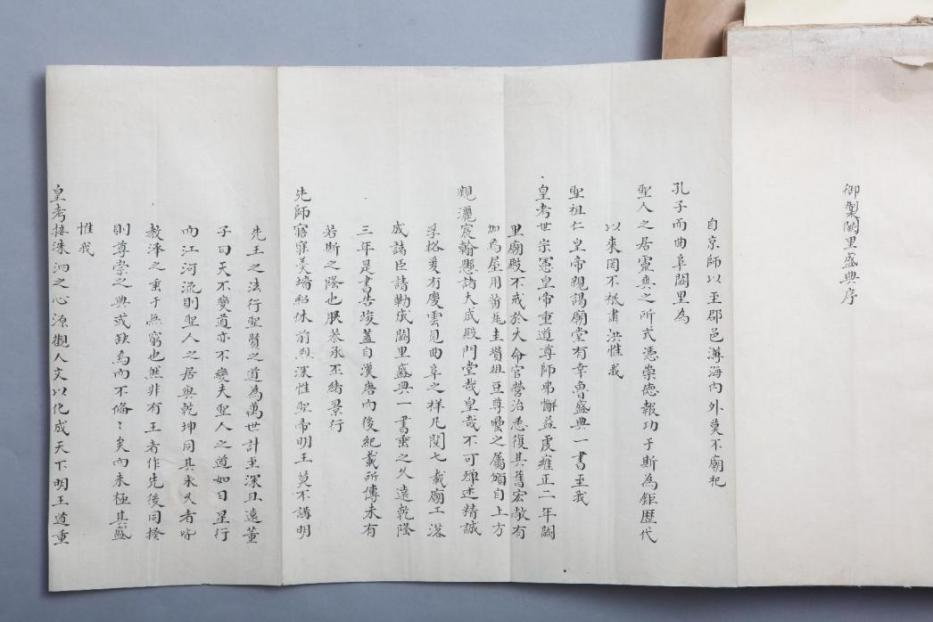 御製闕里盛典序
自京師以至郡邑溥海内外莫不廟祀
孔子而曲阜闕里為
聖人之居靈爽之所式憑崇德報功于斯為鉅歷代
以來罔不祗肅洪惟我
聖祖仁皇帝親謁廟堂有幸魯盛典一書至我
皇考世宗憲皇帝重道尊師弗懈益虔雍正二年闕
里廟殿不戒於火命官營治悉復其舊宏敞有
加焉屋用黃瓦圭瓚俎豆尊罍之屬頒自上方
親灑宸翰懸諸大成殿門堂哉皇哉不可殫述精誠
孚格爰有慶雲見曲阜之祥凡閱七載廟工落
成諸臣請勒成闕里盛典一書垂之久遠乾隆
三年是書告竣蓋自漢唐而後紀載所傳未有
若斯之隆也朕恭承丕緒景行
先師宮牆美墻紹休前烈深惟聖帝明王莫不講明
先王之法行聖賢之道為萬世計至深且遠董
子曰天不變道亦不變夫聖人之道如日星行
而江河流則聖人之居與乾坤同其永久者皆
教澤之垂于無窮也然非有王者作先後同揆
則尊崇之典或缺焉而不備〻矣而未極其盛
惟我
皇考接洙泗之心源觀人文以化成天下明王道重